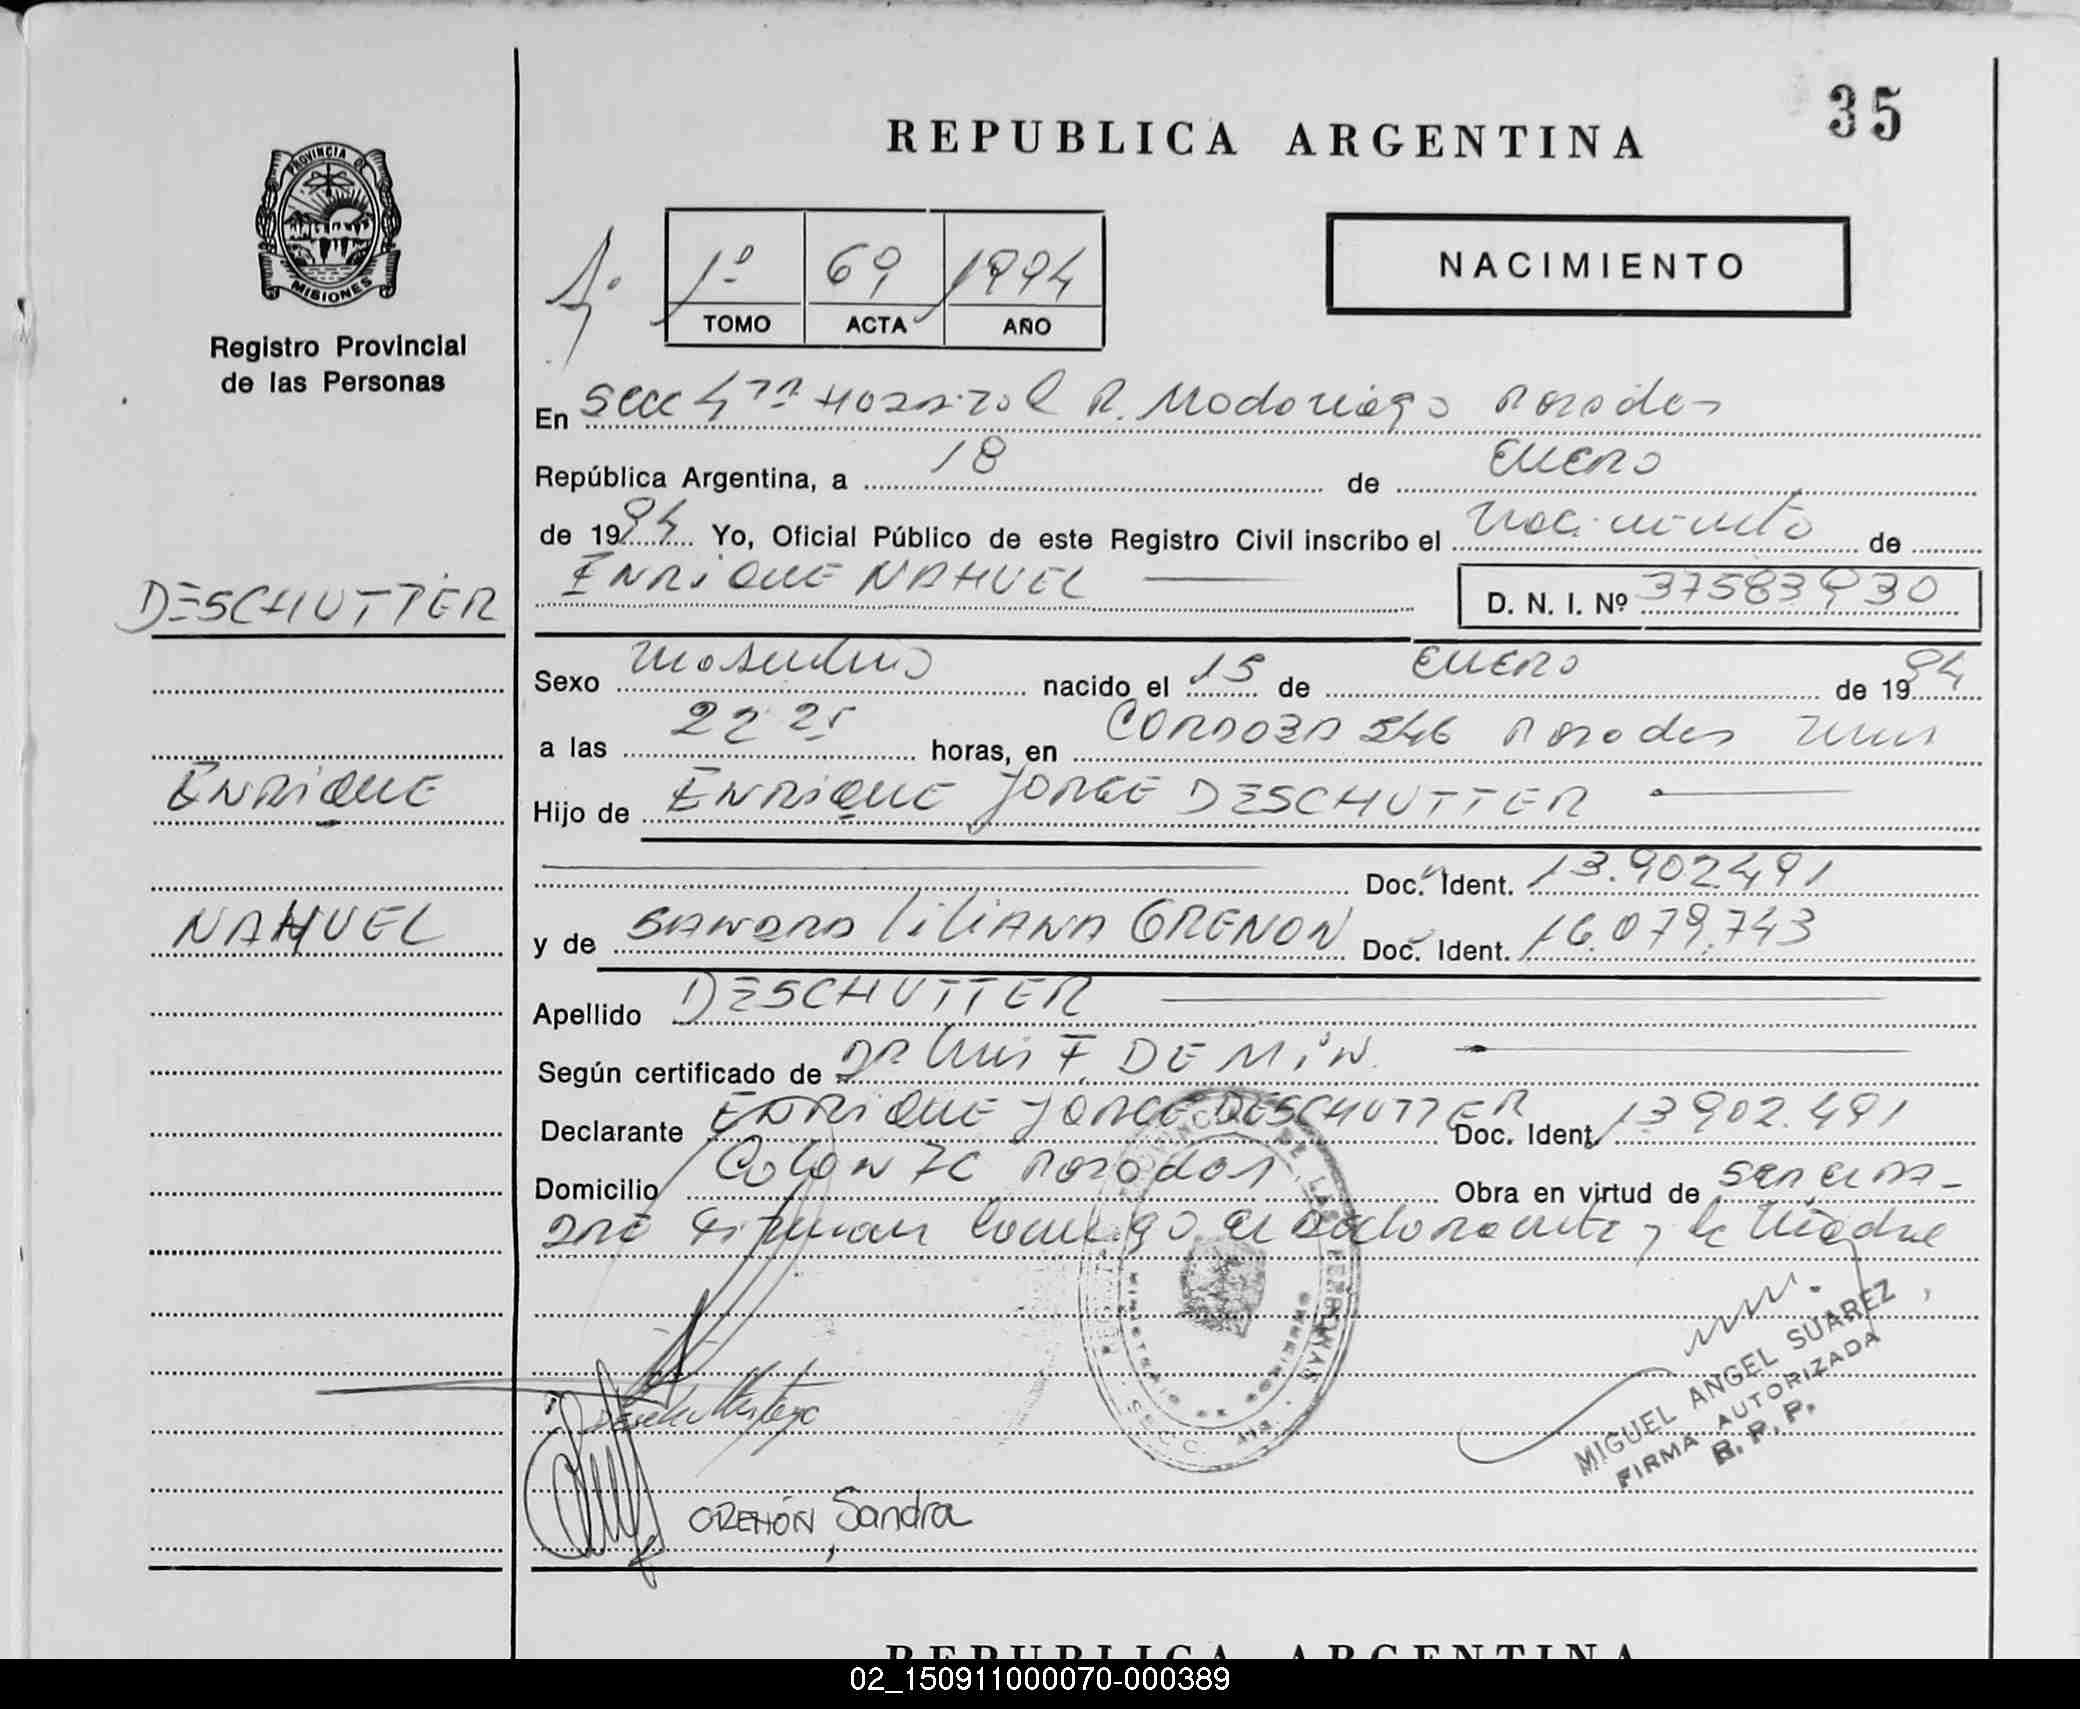 35
REPUBLICA ARGENTINA
PROVINCIA DE
MISIONES
Registro Provincial
de las Personas
1º 69 1994
TOMO ACTA AÑO
NACIMIENTO
En Secc 4ta Hospital R. Madariaga Posadas
República Argentina, a 18 de Enero
de 1994 Yo, Oficial Público de este Registro Civil inscribo el Nacimiento de
DESCHUTTER
ENRIQUE NAHUEL
D. N. I. Nº 37583930
Sexo Masculino nacido el 15 de ENERO de 1994
a las 22 25 horas, en CORDOBA 546 Posadas
ENRIQUE
Hijo de ENRIQUE JORGE DESCHUTTER
Doc. Ident. 13.902.491
NAHUEL
y de SANDRA LILIANA GRENON Doc. Ident. 16.079.743
Apellido DESCHUTTER
Según certificado de DR Luis F. DE MIN.
Declarante ENRIQUE JORGE DESCHUTTER Doc. Ident. 13902.491
Domicilio Colon Posadas Obra en virtud de
firman conmigo el declarante y la Madre
MIGUEL ANGEL SUAREZ
FIRMA AUTORIZADA
R. P. P.
GRENÓN, Sandra
REPUBLICA ARGENTINA
02_150911000070-000389